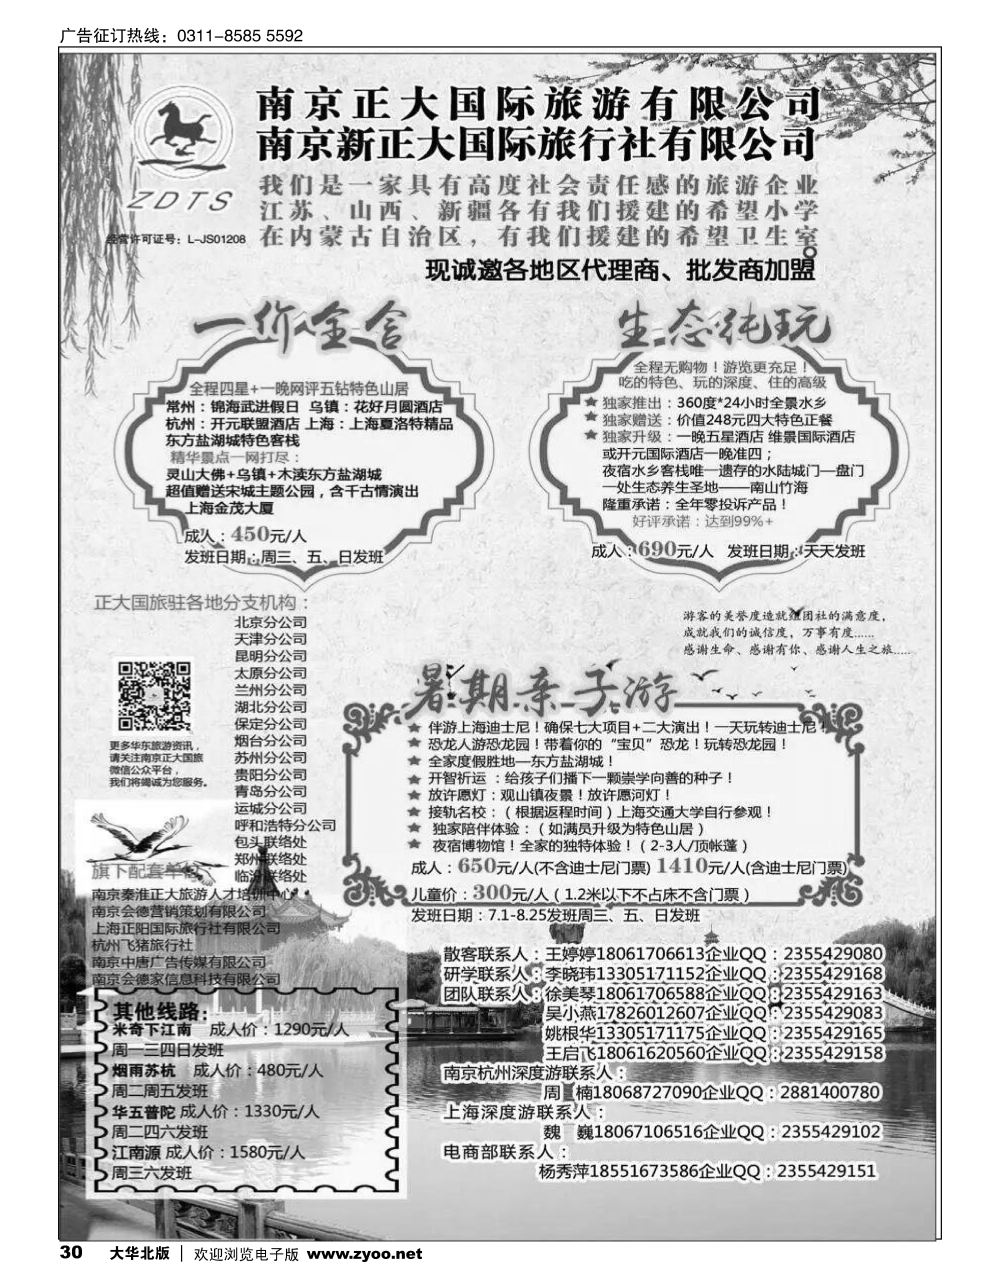 广告征订热线：0311-8585 5592
南京正大国际旅游有限公司
南京新正大国际旅行社有限公司
ZDTS
经营许可证号：L-JS01208
我们是一家具有高度社会责任感的旅游企业
江苏、山西、新疆各有我们援建的希望小学
在内蒙古自治区，有我们援建的希望卫生室。
现诚邀各地区代理商、批发商加盟
一价全含
全程四星+一晚网评五钻特色山居
常州：锦海武进假日 乌镇：花好月圆酒店
杭州：开元联盟酒店 上海：上海夏洛特精品
东方盐湖城特色客栈
精华景点一网打尽：
灵山大佛+乌镇+木渎东方盐湖城
超值赠送宋城主题公园，含千古情演出
上海金茂大厦
成人：450元/人
发班日期：周三、五、日发班
生态纯玩
全程无购物！游览更充足！
吃的特色、玩的深度、住的高级
★独家推出：360度*24小时全景水乡
★独家赠送：价值248元四大特色正餐
★独家升级：一晚五星酒店 维景国际酒店
或开元国际酒店一晚准四；
夜宿水乡客栈唯一遗存的水陆城门—盘门
一处生态养生圣地——南山竹海
隆重承诺：全年零投诉产品！
好评承诺：达到99%+
成人：690元/人 发班日期：天天发班
正大国旅驻各地分支机构：
北京分公司
天津分公司
昆明分公司
太原分公司
兰州分公司
湖北分公司
保定分公司
烟台分公司
苏州分公司
贵阳分公司
青岛分公司
运城分公司
呼和浩特分公司
包头联络处
郑州联络处
临汾联络处
更多华东旅游资讯，
请关注南京正大国旅
微信公众平台，
我们将竭诚为您服务。
游客的美誉度造就组团社的满意度，
成就我们的诚信度，万事有度......
感谢生命、感谢有你、感谢人生之旅.....
暑期亲子游
★ 伴游上海迪士尼！确保七大项目+二大演出！一天玩转迪士尼！
★ 恐龙人游恐龙园！带着你的“宝贝”恐龙！玩转恐龙园！
★ 全家度假胜地—东方盐湖城！
★ 开智祈运：给孩子们播下一颗崇学向善的种子！
★ 放许愿灯：观山镇夜景！放许愿河灯！
★ 接轨名校：（根据返程时间）上海交通大学自行参观！
★ 独家陪伴体验：（如满员升级为特色山居）
★ 夜宿博物馆！全家的独特体验！（2-3人/顶帐篷）
成人：650元/人(不含迪士尼门票) 1410元/人(含迪士尼门票)
儿童价：300元/人（1.2米以下不占床不含门票）
发班日期：7.1-8.25发班周三、五、日发班
旗下配套单位
南京秦淮正大旅游人才培训中心
南京会德营销策划有限公司
上海正阳国际旅行社有限公司
杭州飞猪旅行社
南京中唐广告传媒有限公司
南京会德家信息科技有限公司
其他线路：
米奇下江南 成人价：1290元/人
周一三四日发班
烟雨苏杭 成人价：480元/人
周二周五发班
华五普陀 成人价：1330元/人
周二四六发班
江南源 成人价：1580元/人
周三六发班
散客联系人：王婷婷18061706613企业QQ：2355429080
研学联系人：李晓玮13305171152企业QQ：2355429168
团队联系人：徐美琴18061706588企业QQ：2355429163
吴小燕17826012607企业QQ：2355429083
姚根华13305171175企业QQ：2355429165
王启飞18061620560企业QQ：2355429158
南京杭州深度游联系人：
周 楠18068727090企业QQ：2881400780
上海深度游联系人：
魏 巍18067106516企业QQ：2355429102
电商部联系人：
杨秀萍18551673586企业QQ：2355429151
30 大华北版 | 欢迎浏览电子版 www.zyoo.net